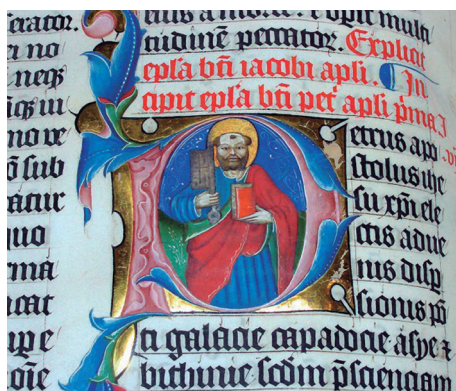 erator.
no
neqꝫ
ō sub
atur
uo
mā
icat
a morte. ⁊ opit multi
tudinē peccatoꝝ. Explicit
epl'a bt̄i iacobi apl'i. In
cipit epl'a bt̄i pet' apl'i p'ma
Petrus apo
stolus ihe
su xp̄i ele
ctis adue
nis disp
sionis pō
ti galacie capadocie asye ⁊
bithinie sc̄dm p̄sciencam